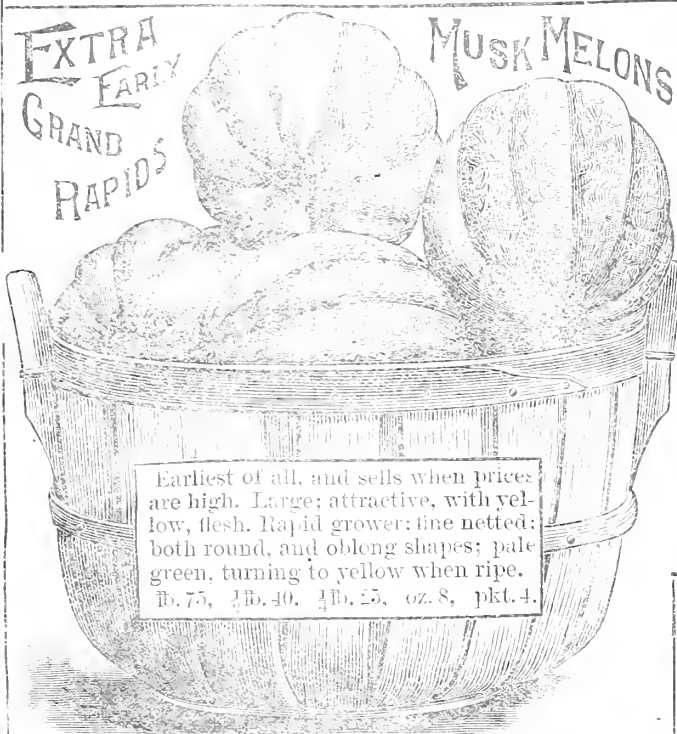 EXTRA
EARLY
GRAND
RAPIDS
MUSK MELONS
Earliest of all, and sells when prices
are high. Large; attractive, with yel-
low, flesh. Rapid grower: fine netted;
both round, and oblong shapes; pale
green, turning to yellow when ripe.
℔. 75, ½℔. 40, ¼℔. 25, oz. 8, pkt. 4.